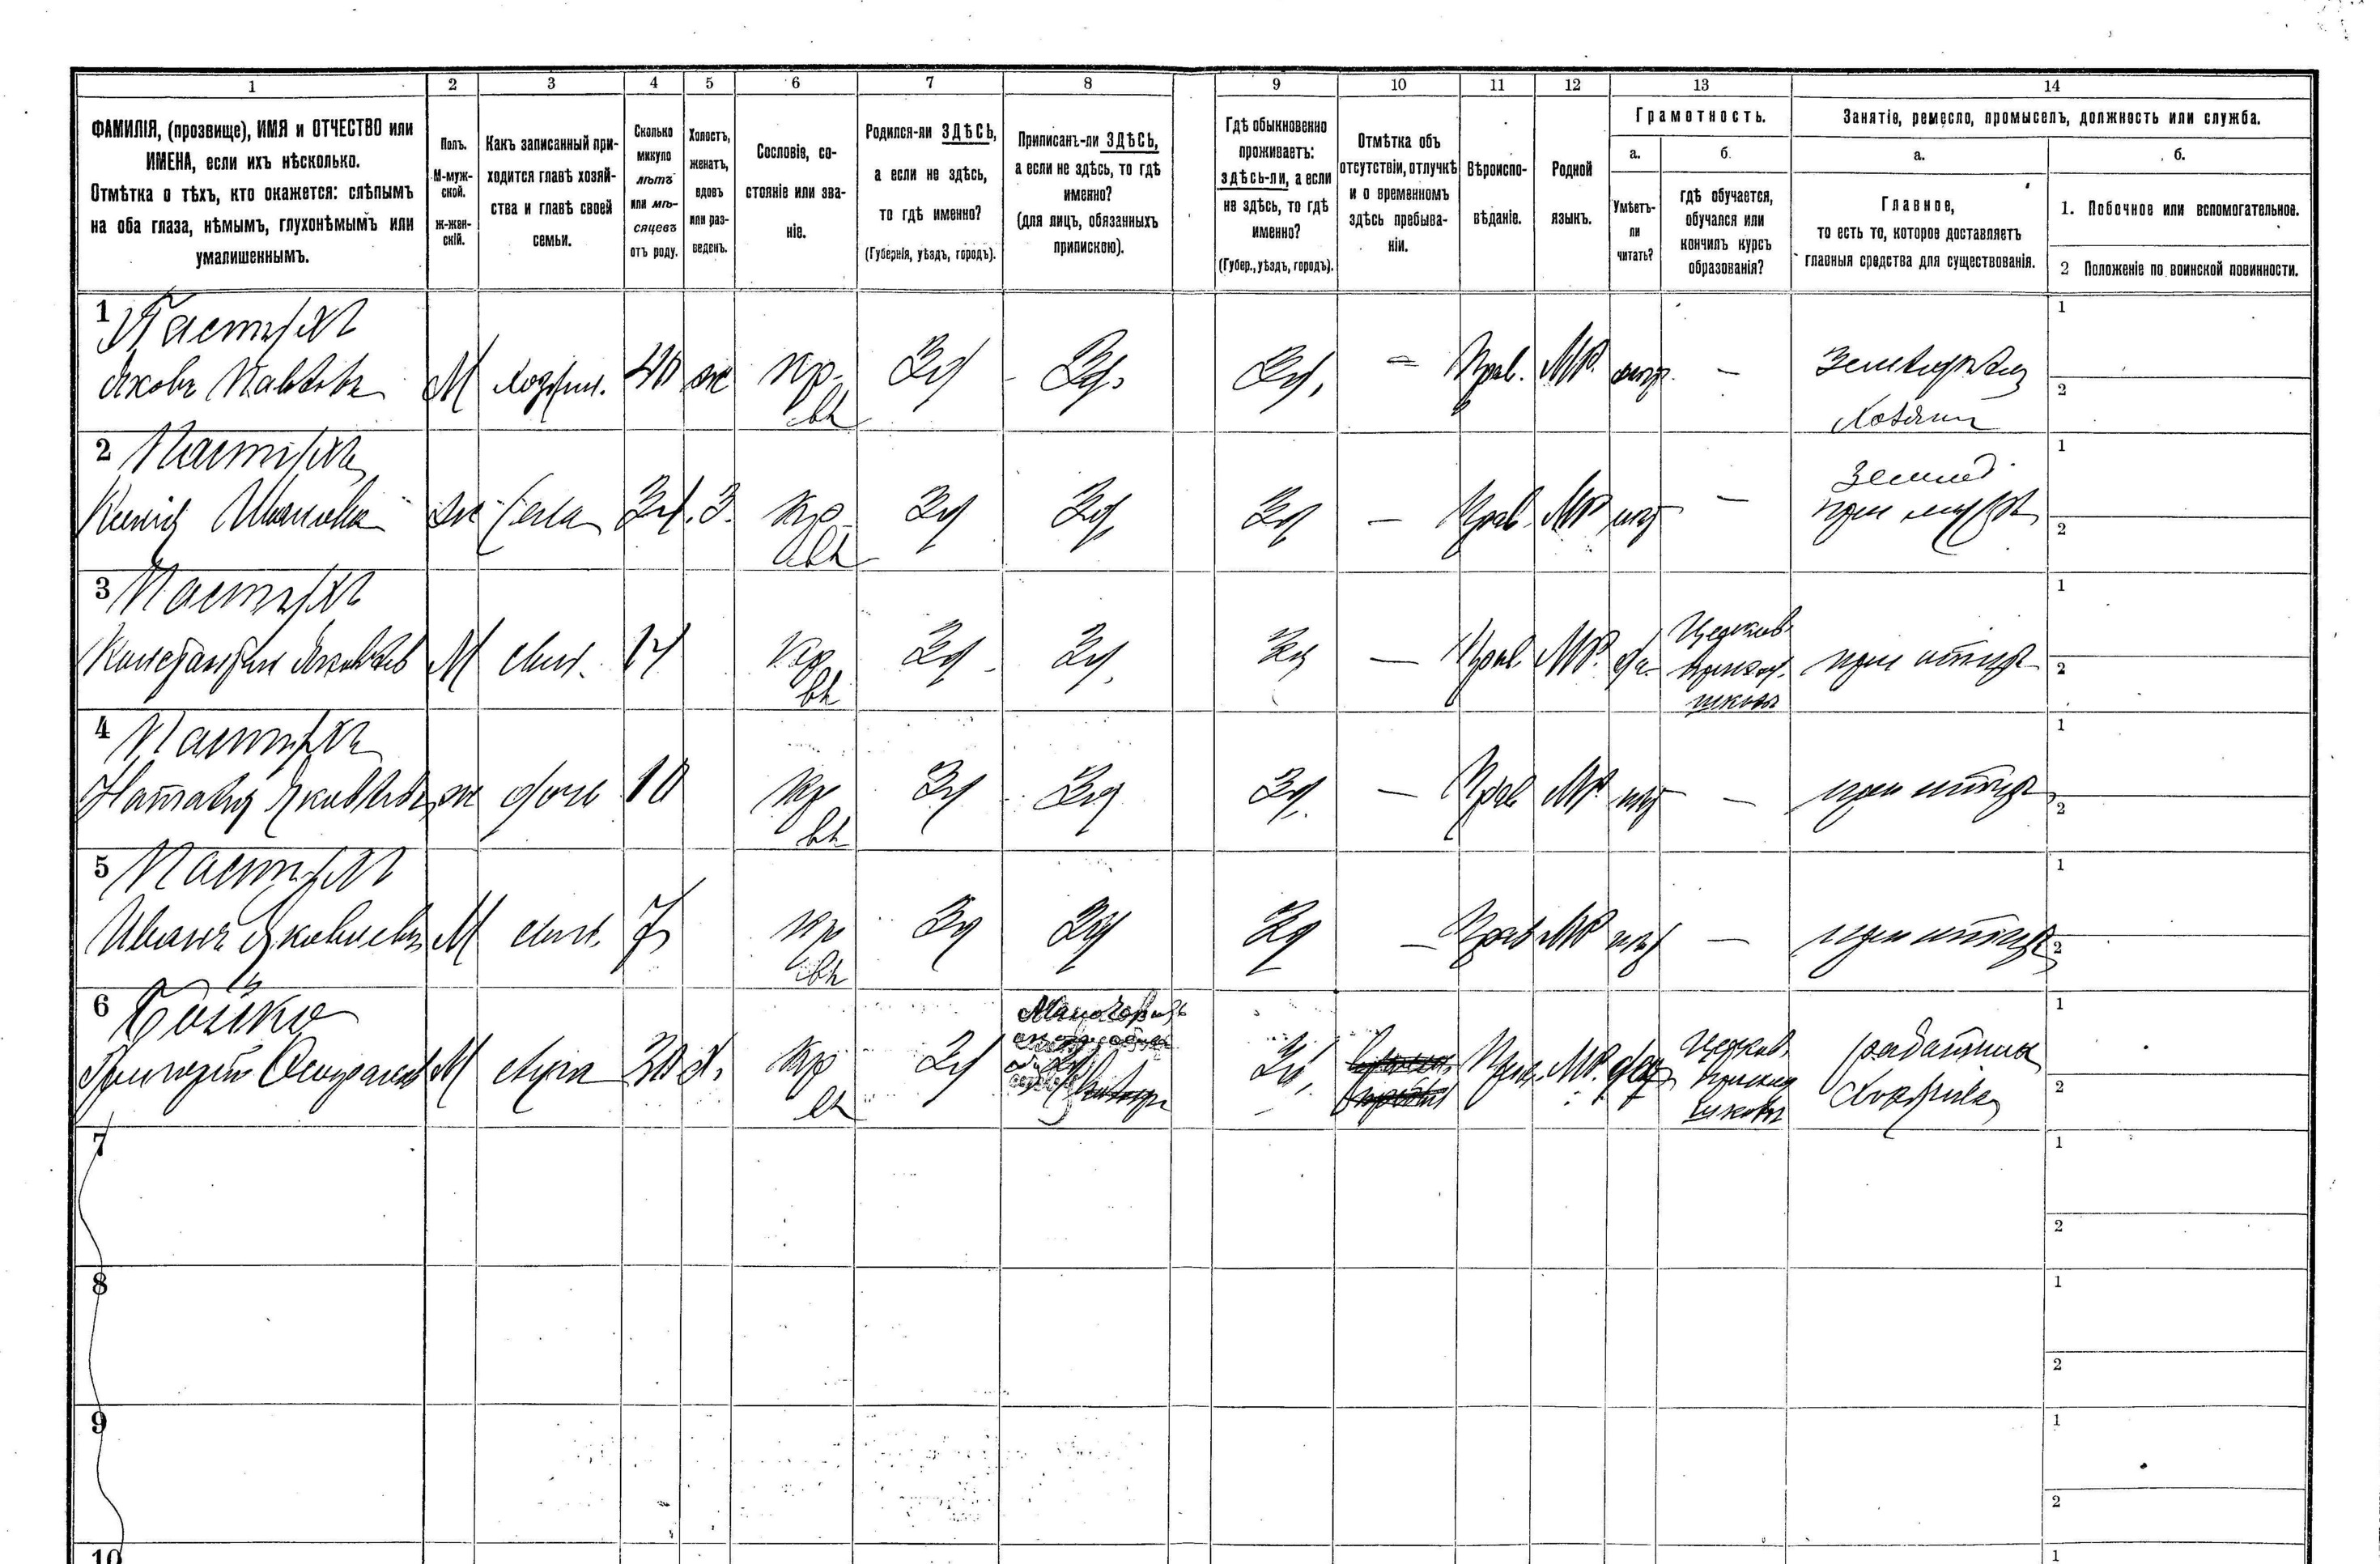 1 2 3 4 5 6 7 8 9 10 11 12 13 14
ФАМИЛІЯ, (прозвище), ИМЯ и ОТЧЕСТВО или
ИМЕНА, если ихъ нѣсколько.
Отмѣтка о тѣхъ, кто окажется: слѣпымъ
на оба глаза, нѣмымъ, глухонѣмымъ или
умалишеннымъ.
Полъ.
М-муж-
ской.
Ж-жен-
скій.
Какъ записанный при-
ходится главѣ хозяй-
ства и главѣ своей
семьи.
Сколько
минуло
лѣтъ
или мѣ-
сяцевъ
отъ роду.
Холостъ,
женатъ,
вдовъ
или раз-
веденъ.
Сословіе, со-
стояніе или зва-
ніе.
Родился-ли ЗДѢСЬ,
а если не здѣсь,
то гдѣ именно?
(Губернія, уѣздъ, городъ).
Приписанъ-ли ЗДѢСЬ,
а если не здѣсь, то гдѣ
именно?
(для лицъ, обязанныхъ
припискою).
Гдѣ обыкновенно
проживаетъ:
здѣсь-ли, а если
не здѣсь, то гдѣ
именно?
(Губер., уѣздъ, городъ).
Отмѣтка объ
отсутствіи, отлучкѣ
и о временномъ
здѣсь пребыва-
ніи.
Вѣроиспо-
вѣданіе.
Родной
языкъ.
Грамотность.
а.
Умѣетъ-
ли
читать?
б.
гдѣ обучается,
обучался или
кончилъ курсъ
образованія?
Занятіе, ремесло, промыселъ, должность или служба.
а.
Главное,
то есть то, которое доставляетъ
главныя средства для существованія.
б.
1. Побочное или вспомогательное.
2 Положеніе по воинской повинности.
1 Пастухъ 1
Яковъ Павловъ М хозяин. 40 ж Кр. Зд Зд. Зд. — Прав. МР. нѣт. — Земледѣлец 2
вл Хозяин
2 Пастухъ 1
Ивановна ж жена З. Кр Зд Зд Зд — Прав. МР нѣт — при мужѣ 2
вл
3 Пастухъ 1
Константин Яковлев М сын. 14 Кр Зд Зд. Зд — Прав. МР. да Церков приход. школа при отцѣ 2
вл
4 Пастухъ 1
Наталья Яковлева ж дочь 10 Кр Зд Зд Зд. — Прав МР нѣт — при отцѣ 2
вл
5 Пастухъ 1
Иванъ Яковлевъ М сын. 7 Кр Зд Зд Зд — Прав МР нѣт — при отцѣ 2
вл
6 Бойко 1
Григорій М слуга 30 х. Кр Зд Зд. Прав. МР. да Церков. приход школа работник 2
вл
7 1
2
8 1
2
9 1
2
10 1